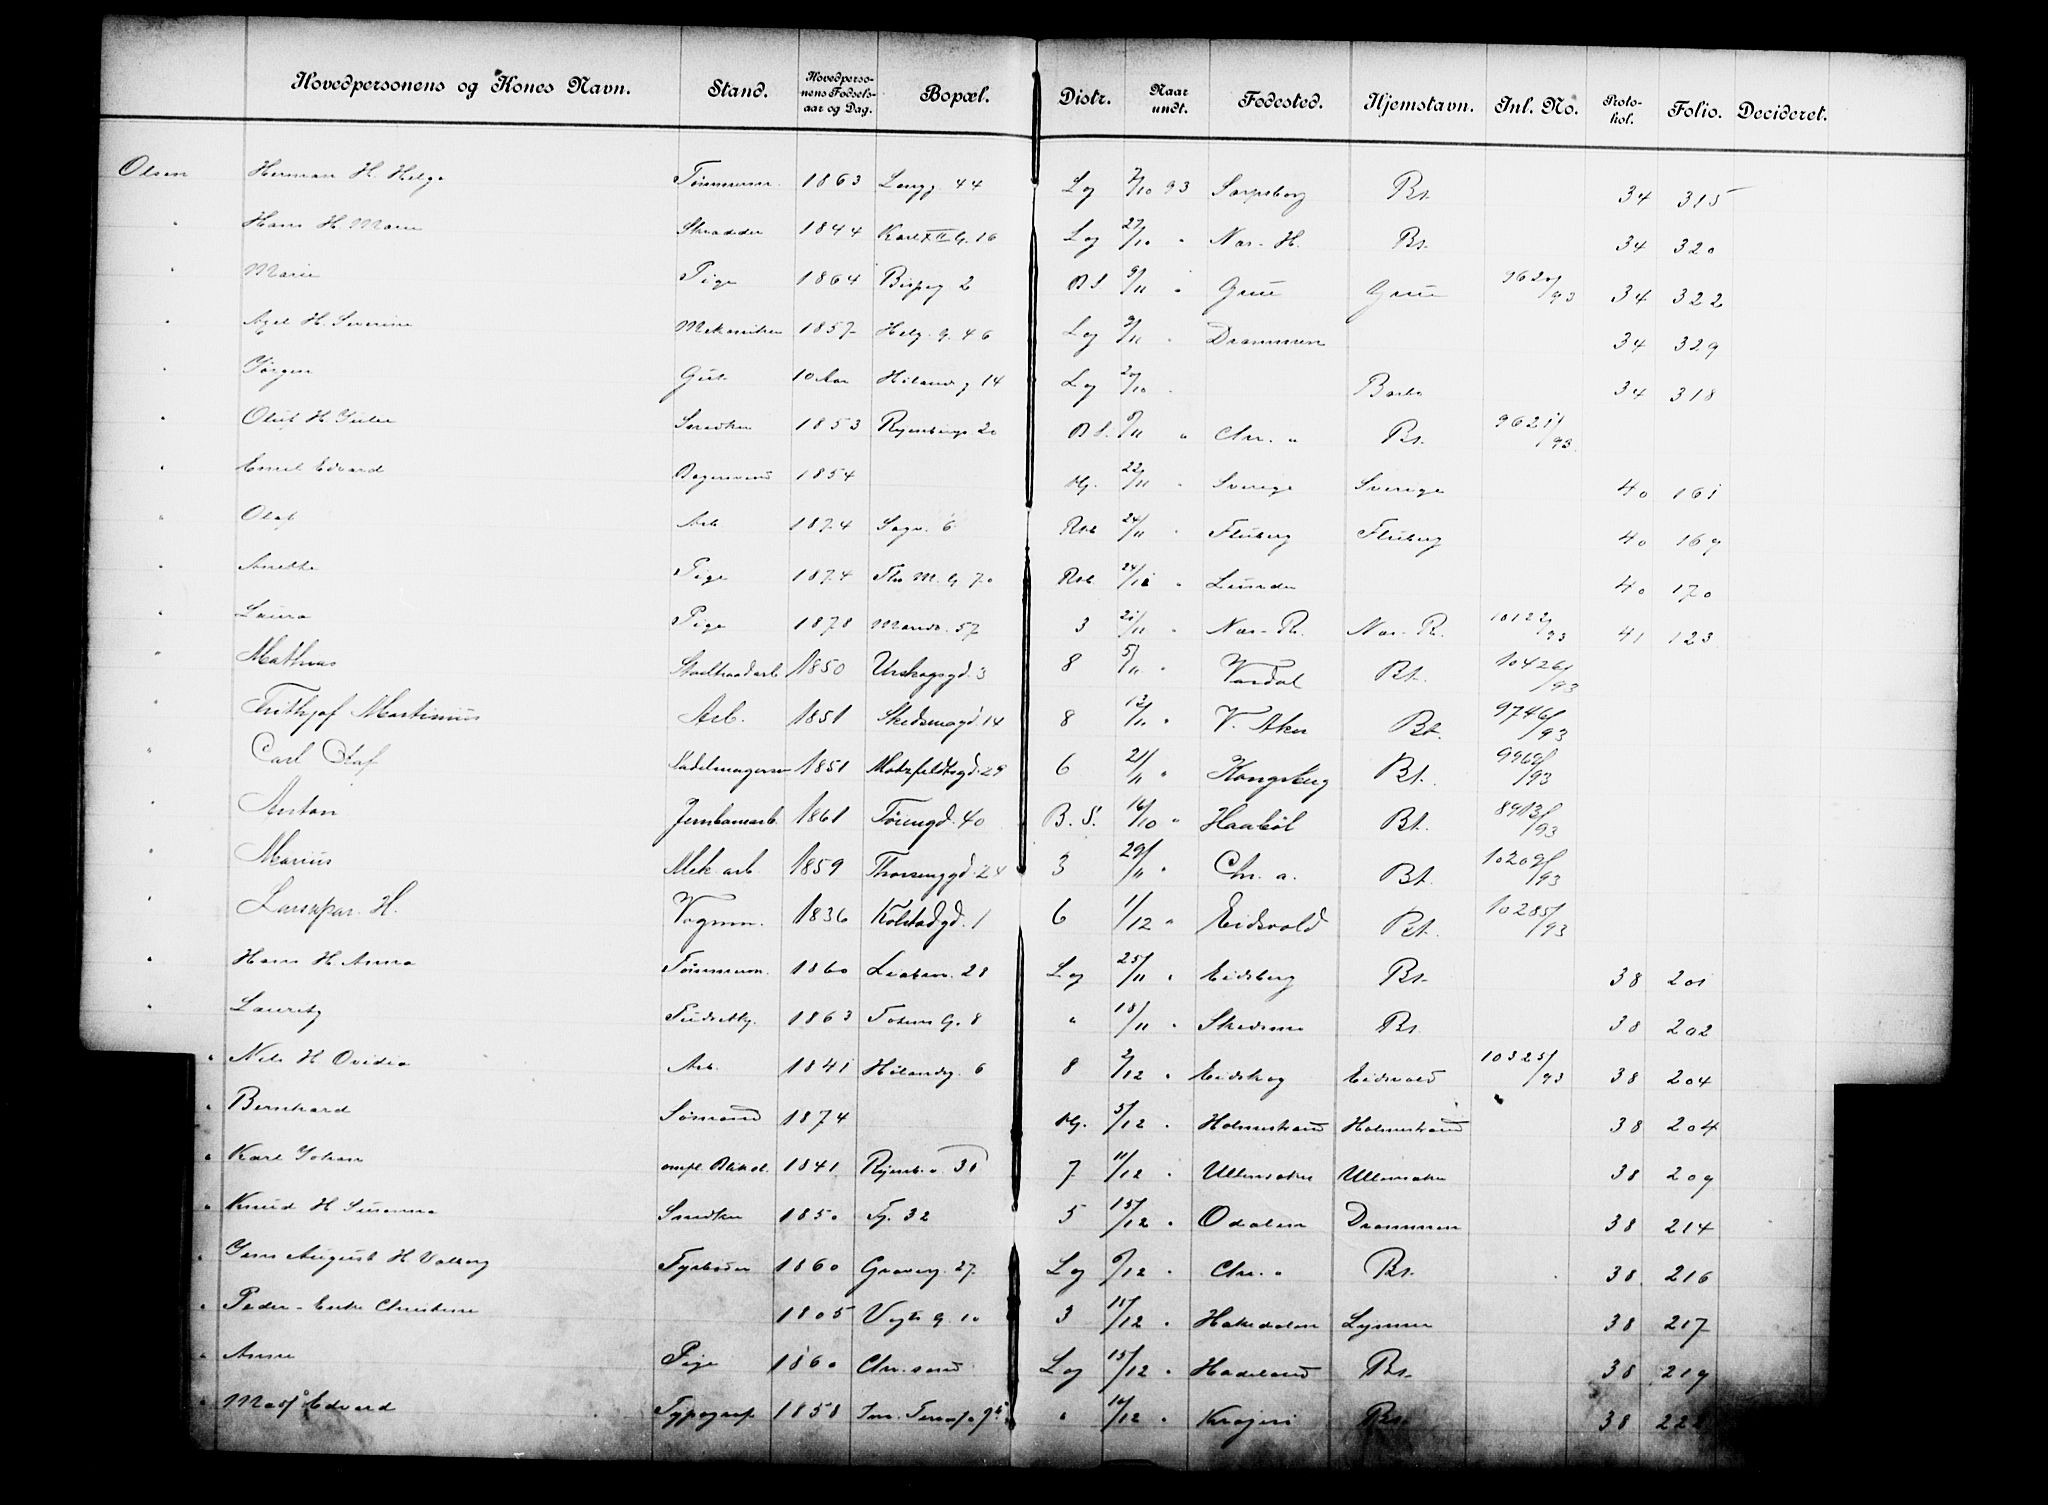 Hovedpersonens og Kones Navn. Stand. Hovedperso-nens Fødsels-aar og Dag. Bopæl. Distr. Naar undt. Fødested. Hjemstavn. Inl. No. Proto-kol. Folio. Decideret.
Olsen Herman H. Helga Tømmerm. 1863 Langg. 44 Lg 7/10 93 Sarpsborg Bt. 34 315
" Hans H. Marie Skrædder 1844 Karl XII G. 16 Lg 27/10 " Næs-H. Bt. 34 320
" Marie Pige 1864 Bispeg 2 B S 9/11 " Grue Grue 9620/93 34 322
" Axel H. Severine Mekaniker 1857 Helg. G. 46 Lg 3/11 " Drammen 34 329
" Jørgen Gut 10 Aar Hølandsg 14 Lg 20/10 " 34 318
" Oluf H. Snedker 1853 Ryenbergs 20 B S. /11 " Chr. a Bt. 9621/93
" Emil Edvard Bagersvend 1854 22/11 " Sverige Sverige 40 161
" Olaf Arb 1874 Sagv. 6 24/11 " Fluberg Fluberg 40 169
" Anette Pige 1874 Thv. M. G 70 24/11 " Lunder 40 170
" Laura Pige 1878 57 3 21/11 " Næs-R. Næs-R. 10122/93 41 123
" Mathias 1850 Urskogsgd. 3 8 5/11 " Vardal Bt. 10426/93
" Frithjof Martinius Arb. 1851 Skedsmogd. 14 8 12/11 " V. Aker Bt. 9746/93
" Carl Olaf Sadelmagersv 1851 Motzfeldtsgd. 29 6 21/11 " Kongsberg Bt. 9962/93
" Anton Jernbanearb. 1861 Tøiengd. 40 B. S. 16/10 " Haabøl Bt. 8913/93
" Marius Mek. arb. 1859 Thorsenggd. 24 3 29/11 " Chr. a. Bt. 10209/93
" H. Vognm. 1836 Kolstadgd. 1 6 1/12 " Eidsvold Bt. 10285/93
" Hans H Anna Tømmerm. 1860 28 Lg 25/11 " Eidsberg Bt. 38 201
" Lauritz 1863 Totens G. 8 " 18/11 " Skedsmo Bt. 38 202
" Nils H Ovidia Arb. 1841 Hølandsg. 6 8 2/12 " Eidskog Eidsvold 10325/93 38 204
" Bernhard Sømand 1874 5/12 " Holmestrand Holmestrand 38 204
" Karl Johan 1841 Ryenb. 7 11/12 " Ullensaker Ullensaker 38 209
" Knud H Susanna Snedker 1850 Tg. 32 5 15/12 " Odalen Drammen 38 214
" Jens August H Valborg Fyrbøder 1860 Grønvg. 27 Lg /12 " Chr. a Bt. 38 216
" Peder - Enke Christine 1805 Vogts G. 10 3 15/12 " Hakedalen 38 217
" Anne Pige 1860 Chr. sand Lg 15/12 " Hadeland Bt. 38 219
" Edvard Typograf 1858 " 16/12 " Kragerø Bt. 38